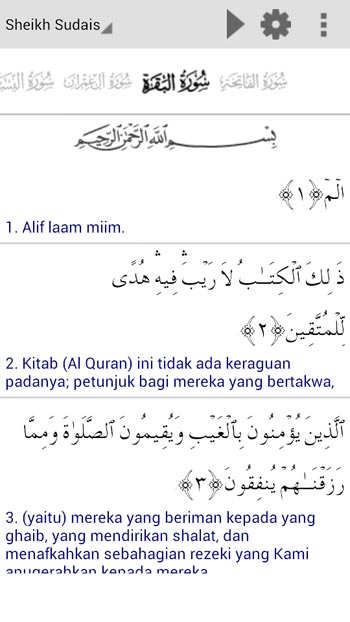 Sheikh Sudais
سُورَةُ الفَاتِحَةِ سُورَةُ البَقَرَةِ سُورَةُ آلِ عِمْرَان سُورَةُ
بِسْمِ ٱللَّهِ ٱلرَّحْمَٰنِ ٱلرَّحِيمِ
الٓمٓ ﴿١﴾
1. Alif laam miim.
ذَٰلِكَ ٱلْكِتَـٰبُ لَا رَيْبَ ۛ فِيهِ ۛ هُدًى
لِّلْمُتَّقِينَ ﴿٢﴾
2. Kitab (Al Quran) ini tidak ada keraguan
padanya; petunjuk bagi mereka yang bertakwa,
ٱلَّذِينَ يُؤْمِنُونَ بِٱلْغَيْبِ وَيُقِيمُونَ ٱلصَّلَوٰةَ وَمِمَّا
رَزَقْنَـٰهُمْ يُنفِقُونَ ﴿٣﴾
3. (yaitu) mereka yang beriman kepada yang
ghaib, yang mendirikan shalat, dan
menafkahkan sebahagian rezeki yang Kami
anugerahkan kepada mereka